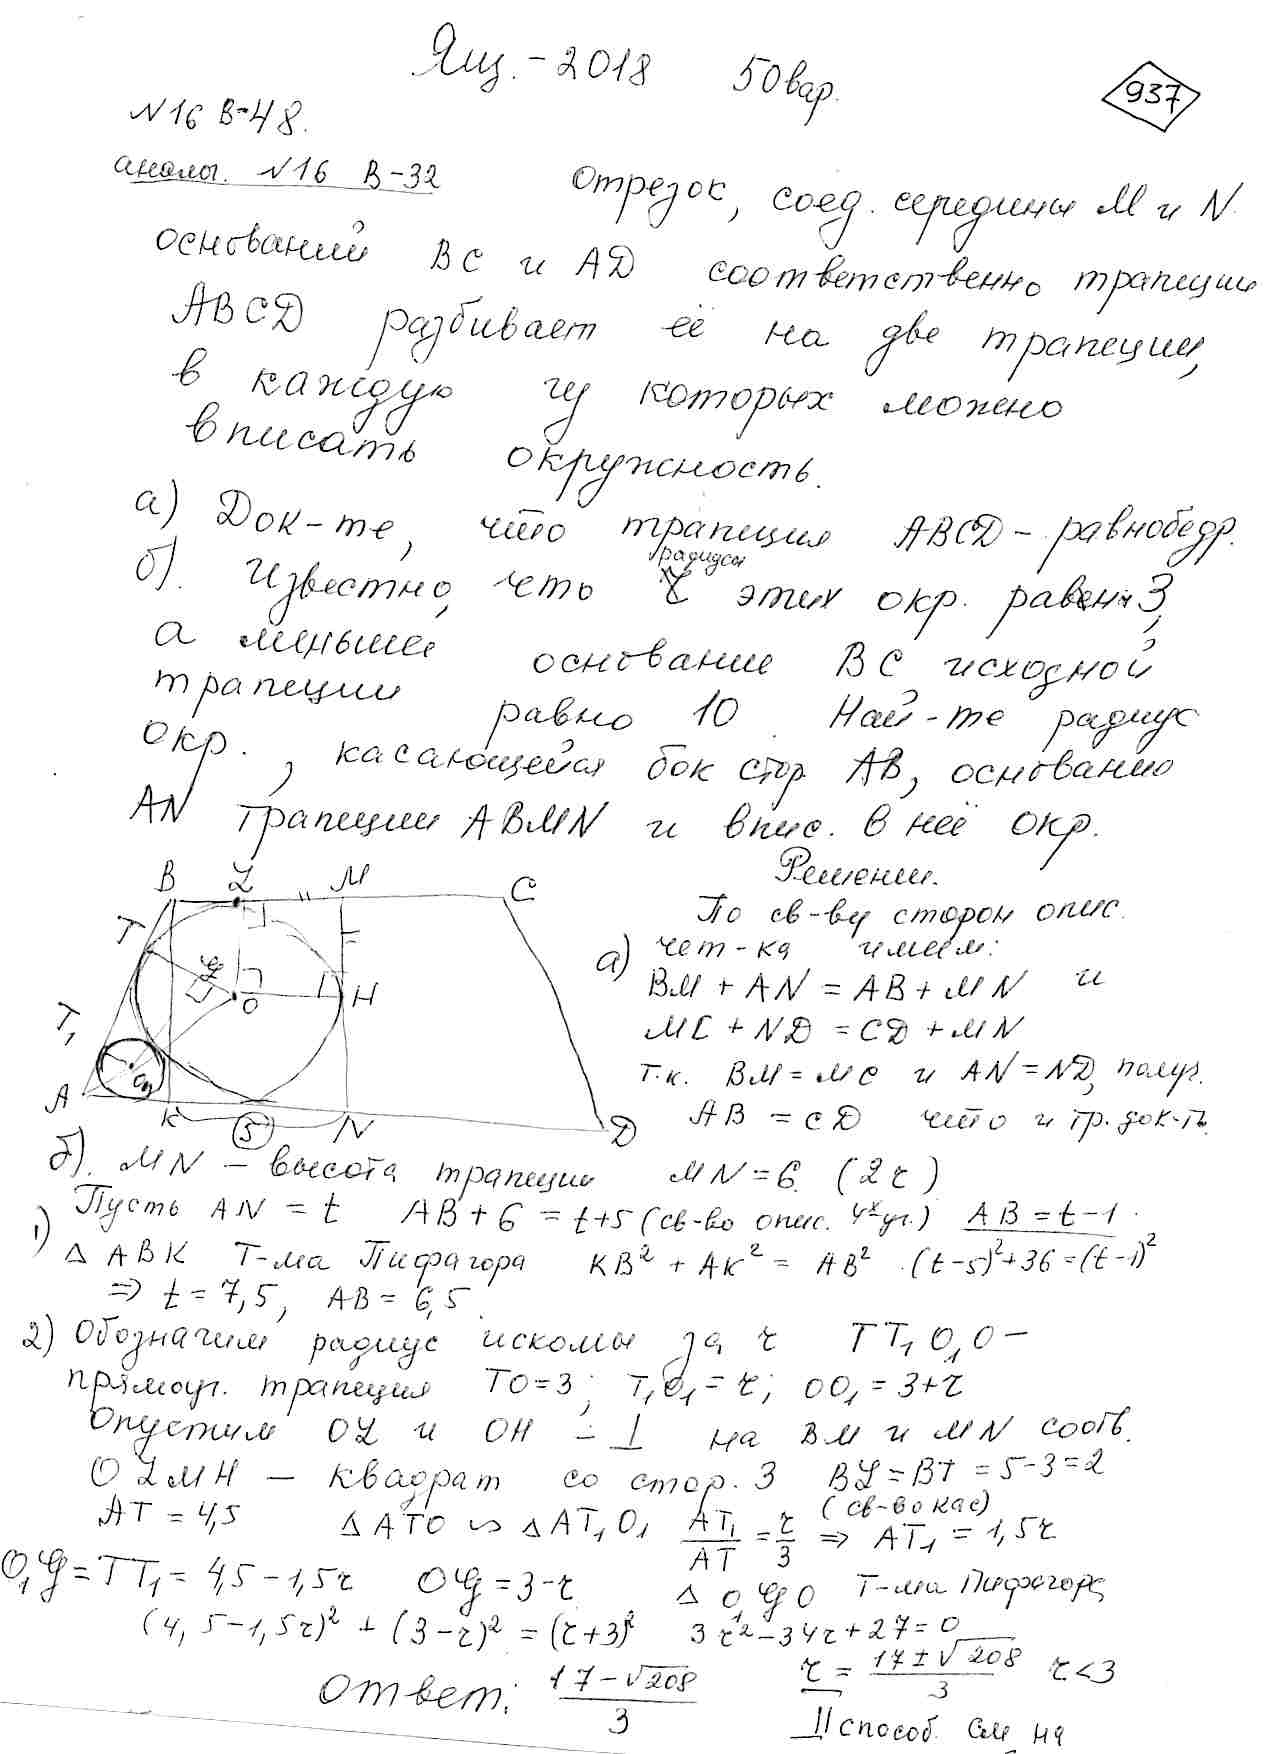 Ящ.-2018 50 вар.
937
N16 В-48.
аналог. N16 В-32 Отрезок, соед. середины M и N
оснований BC и AD соответственно трапеции
ABCD разбивает её на две трапеции,
в каждую из которых можно
вписать окружность.
а) Док-те, что трапеция ABCD - равнобедр.
б). Известно, что радиусы этих окр. равен 3,
а меньшее основание BC исходной
трапеции равно 10. Най-те радиус
окр., касающейся бок стор AB, основанию
AN трапеции ABMN и впис. в неё окр.
B L M C
T
O H
T₁
O₁
A K 5 N D
Решении.
По св-ву сторон опис.
а) чет-ка имеем:
BM + AN = AB + MN и
MC + ND = CD + MN
т.к. BM = MC и AN = ND, получ.
AB = CD что и тр. док-ть.
б). MN - высота трапеции MN = 6. (2r)
1) Пусть AN = t AB + 6 = t+5 (св-во опис. 4ˣуг.) AB = t-1.
Δ ABK Т-ма Пифагора KB² + AK² = AB². (t-5)²+36=(t-1)²
=> t = 7,5, AB = 6,5
2) Обозначим радиус искомы за r TT₁O₁O -
прямоуг. трапеция TO=3; T₁O₁=r; OO₁=3+r
Опустим OL и OH - ⊥ на BM и MN соотв.
OLMH - квадрат со стор. 3 BL=BT=5-3=2
(св-во кас)
AT = 4,5 Δ ATO ∽ Δ AT₁O₁ AT₁/AT = r/3 => AT₁ = 1,5r
O₁Y=TT₁=4,5-1,5r OY=3-r Δ O₁YO Т-ма Пифагора
(4,5-1,5r)² + (3-r)² = (r+3)² 3r²-34r+27=0
r = (17±√208)/3 r<3
Ответ: (17-√208)/3
II способ. см на